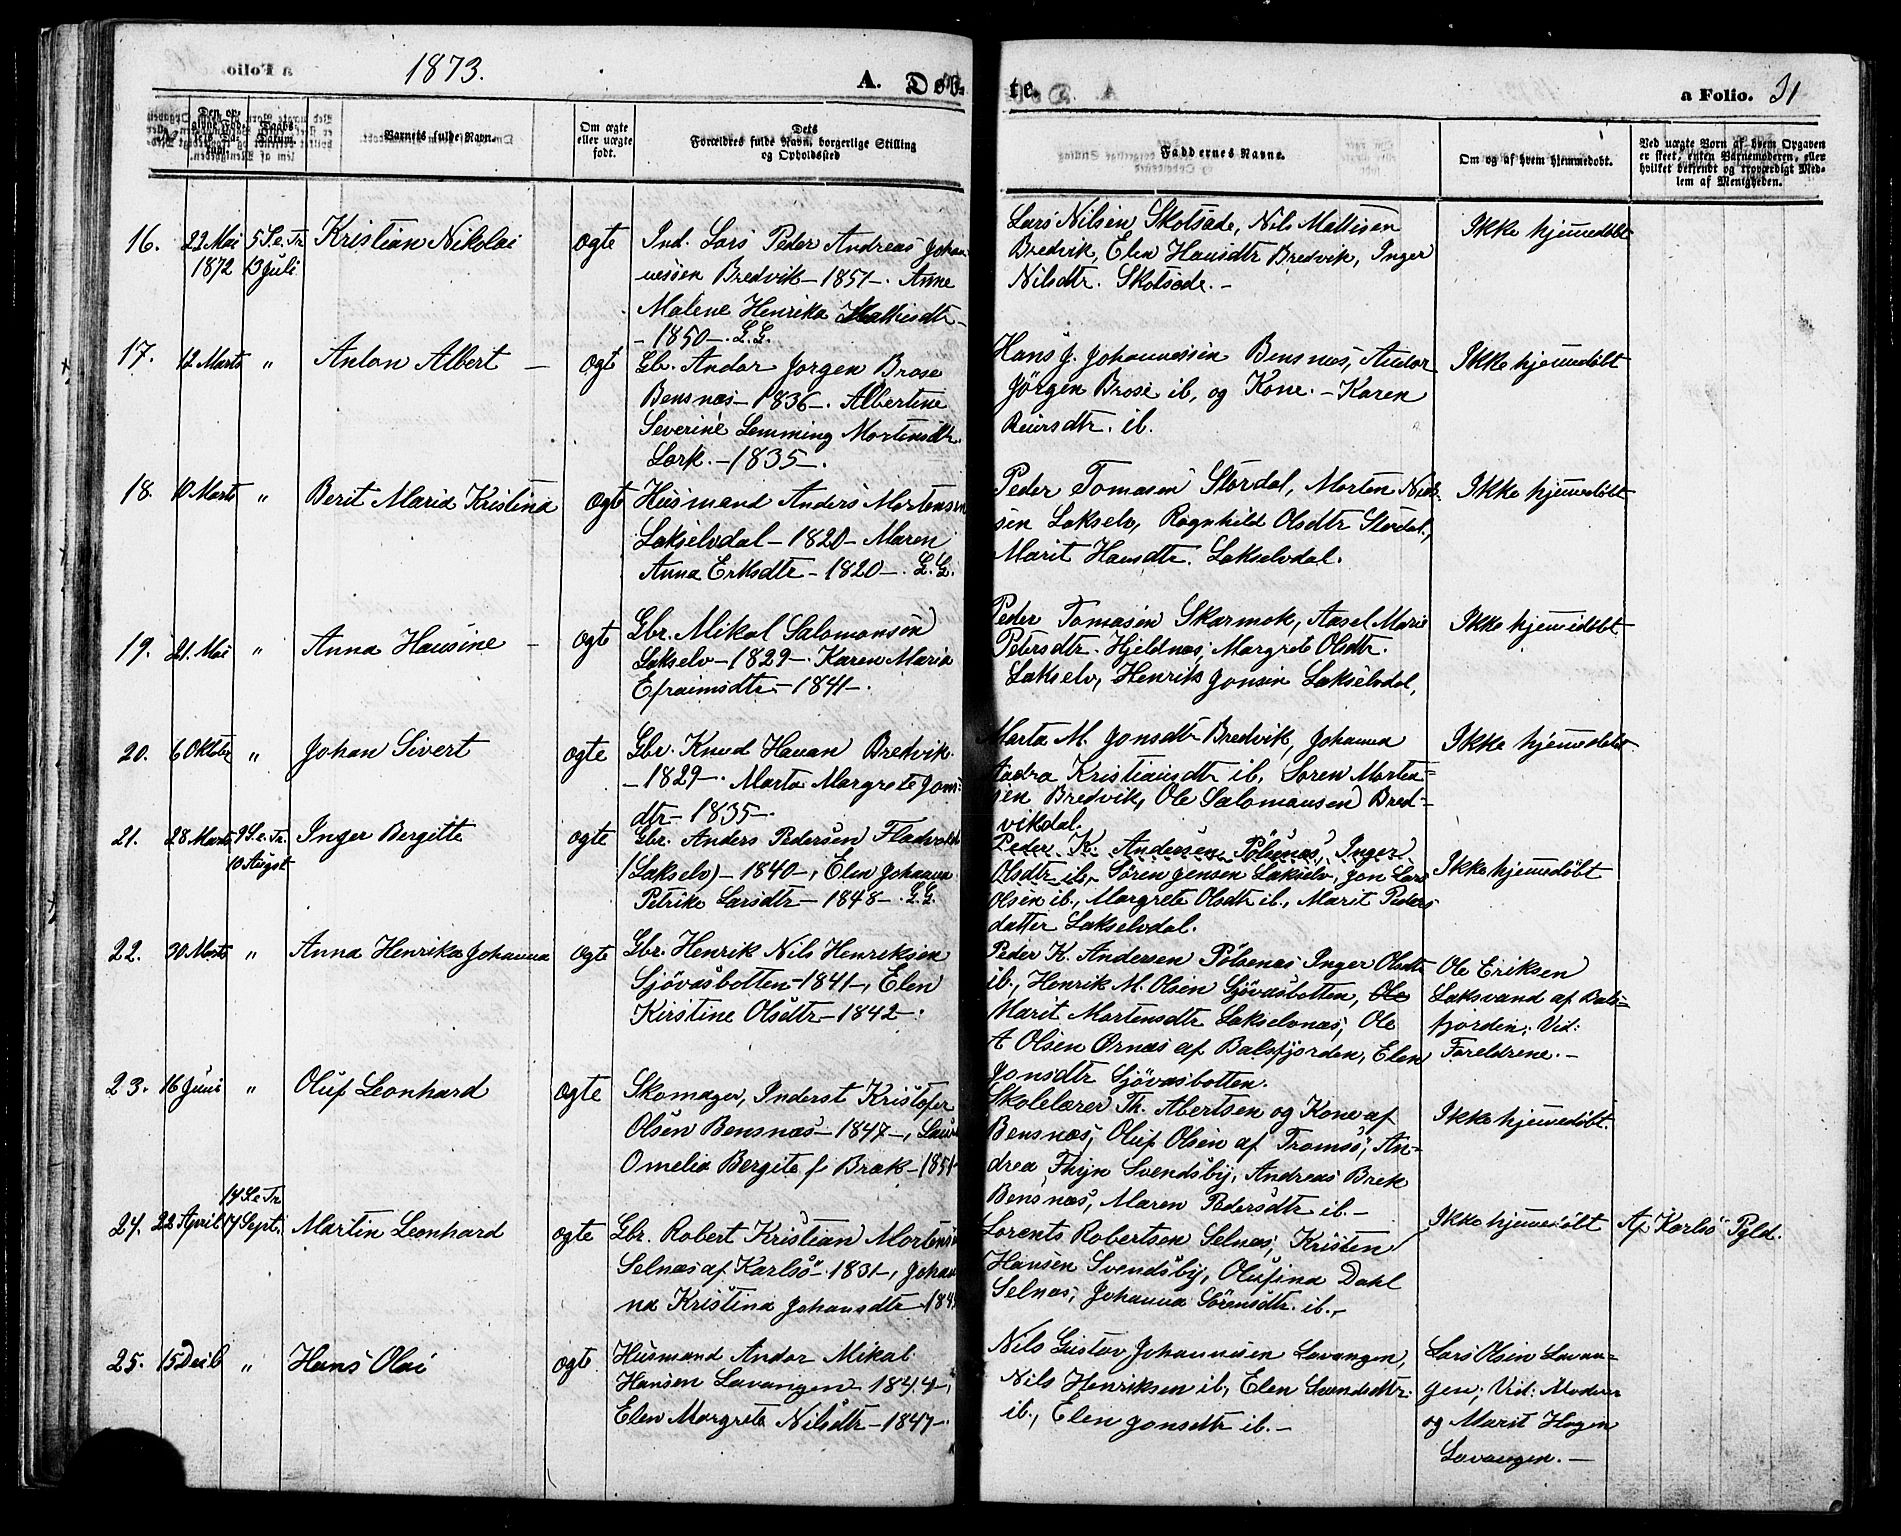 1873.
A. Døb-
te.
a Folio. 31
Barnets fulde Navn.
Om ægte eller uægte født.
Dets Forældres fulde Navn, borgerlige Stilling og Opholdssted
Faddernes Navne.
Om og af hvem hjemmedøbt.
Ved uægte Born af hvem Opgaven er skeet, enten Barnemoderen, eller hvilket bekjendt og troværdigt Medlem af Menigheden.
16. 22 Mai 5 S. e. Tr. Kristian Nikolai ægte Ind. Lars Peder Andreas Johan-
1872 13 Juli nessen Bredvik - 1851 -. Anne
Malene Henrika Mathisdtr -
- 1850 -. L.L.
Lars Nilsen Skotsæde, Nils Mattisen
Bredvik, Elen Hansdtr Bredvik, Inger
Nilsdtr. Skotsæde. -
Ikke hjemmedøbt
17. 12 Marts " Anton Albert - ægte Gbr. Andor Jørgen Brose
Bensnæs - 1836 -. Albertine
Severine Lemming Mortensdtr.
Lork. - 1835 -.
Hans J. Johannessen Bensnæs, Andor
Jörgen Brose ib, og Kone. - Karen
Reiersdtr. ib.
Ikke hjemmedøbt
18. 10 Marts " Berit Maria Kristina ægte Husmand Anders Mortensen
Lakselvdal - 1820 - Maren
Anna Eriksdtr - 1820 -. L.L.
Peder Tomasen Stordal, Morten Niel-
sen Lakselv, Ragnhild Olsdtr Stordal,
Marit Hansdtr. Lakselvdal.
Ikke hjemmedøbt
19. 21. Mai " Anna Hansine - ægte Gbr. Mikal Salomonsen
Lakselv - 1829 -. Karen Maria
Efraimsdtr. - 1841 -.
Peder Tomasen Skarmok, Aasel Marie
Petersdtr. Hjeldnæs, Margrete Olsdtr.
Lakselv, Henrik Jonsen Lakselvdal,
Ikke hjemmedøbt
20. 6 Oktober " Johan Sivert ægte Gbr. Knud Hanan Bredvik.
- 1829 -. Marta Margrete Jons-
dtr - 1835 -.
Marta M. Jonsdtr Bredvik, Johanna
Andrea Kristiansdtr ib, Søren Morten-
sen Bredvik, Ole Salomansen Bred-
vikdal.
Ikke hjemmedøbt
21. 28 Marts 9 S. e. Tr. Inger Bergitte ægte Gbr. Anders Pedersen Fladvold
10 August (Lakselv) - 1840 -, Elen Johanna
Petrike Larsdtr - 1848 -. L.L.
Peder K. Andersen Pölsenæs, Inger
Olsdtr ib, Sören Jensen Lakselv, Jon Lars
Olsen ib., Margrete Olsdtr ib., Marit Peders-
datter Lakselvdal.
Ikke hjemmedøbt
22. 30 Marts " Anna Henrika Johanna ægte Gbr. Henrik Nils Henriksen
Sjövasbotten - 1841 -, Elen
Kirstine Olsdtr - 1842 -.
Peder K. Andersen Pölsenæs Inger Olsdtr
ib., Henrik M. Olsen Sjövasbotten, Ole
Marit Mortensdtr Lakselvnæs, Ole
A Olsen Ørnæs af Balsfjorden, Elen
Jonsdtr Sjövasbotten.
Ole Eriksen
Laksvand af Bals-
fjorden. Vid:
Foreldrene. -
23. 16 Juni " Oluf Leonhard ægte Skomager, Inderst Kristofer
Olsen Bensnæs - 1847 -,
Omelia Bergite f. Bræk - 1851
Skolelærer Th. Abertsen og Kone af
Bensnæs, Oluf Olsen af Tromsö, An-
drea Thijn Svendsby, Andreas Brek
Bensnæs, Maren Pedersdtr ib. -
Ikke hjemmedøbt.
14 S. e. Tr.
24. 22 April 14 Sept. Martin Leonhard ægte Gbr. Robert Kristian Mortensen
Selnæs af Karlsö - 1831 -, Johan-
na Kristina Johansdtr
Lorents Robertsen Selnæs, Kristen
Hansen Svendsby, Olufina Dahl
Selnæs, Johanna Sörensdtr. ib. -
Ikke hjemmedøbt
Af Karlsö Pgld.
25. 15 " Hans Olai ægte Husmand Andor Mikal
Hansen Lavangen 1844 -,
Elen Margreta Nilsdtr - 1847 -.
Nils Gustav Johannesen Lavangen,
Nils Henriksen ib, Elen Svendsdtr.
ib., Elen Jonsdtr ib. -
Lars Olsen Lavan-
gen, Vid: Moderen
og Marit Hagen
Lavangen. -